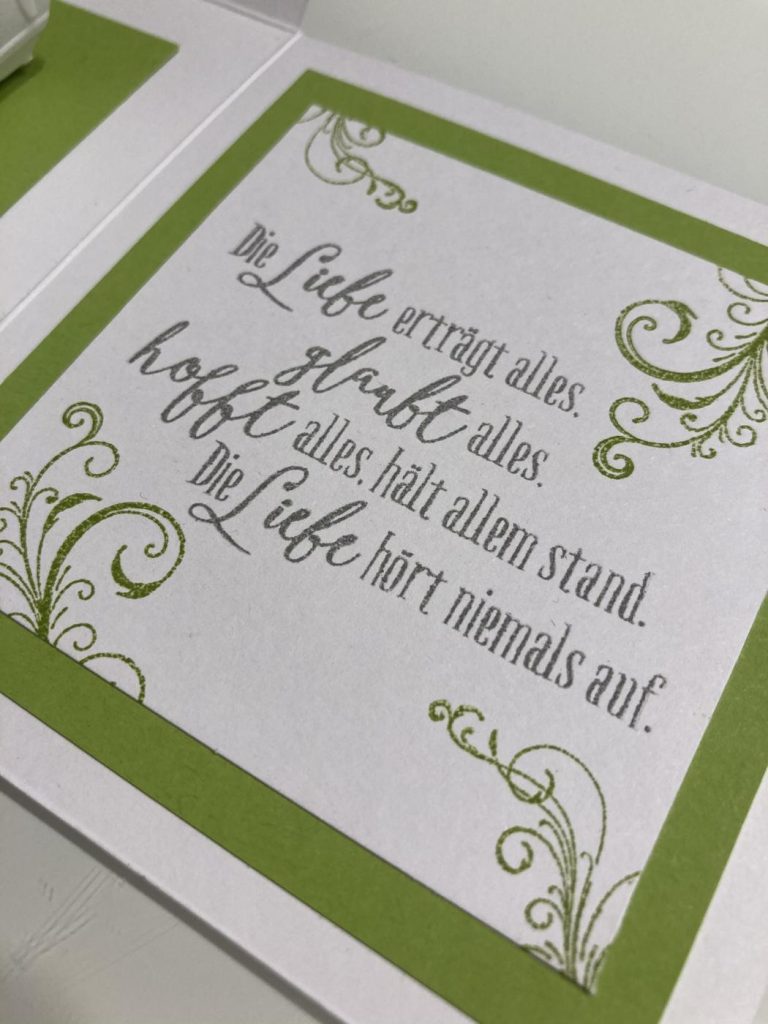 Die Liebe erträgt alles,
glaubt alles,
hofft alles, hält allem stand.
Die Liebe hört niemals auf.